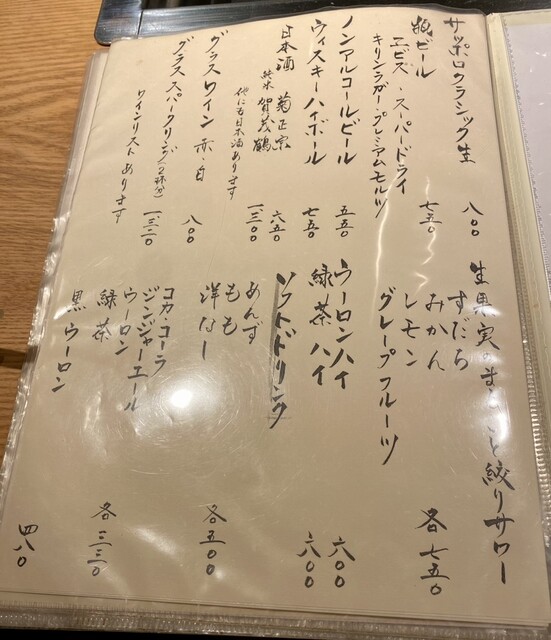 サッポロクラシック生 八〇〇
瓶ビール
エビス・スーパードライ
キリンラガー・プレミアムモルツ 七五〇
ノンアルコールビール 五五〇
ウィスキーハイボール 七五〇
日本酒 菊正宗 六五〇
純米 賀茂鶴 一三〇〇
他にも日本酒あります
グラスワイン 赤・白 八〇〇
グラススパークリング(2杯分) 一三二〇
ワインリストあります
生果実のまるごと絞りサワー
すだち
みかん
レモン
グレープフルーツ 各 七五〇
ウーロンハイ 六〇〇
緑茶ハイ 六〇〇
ソフトドリンク
あんず
もも
洋なし 各 五〇〇
コカ・コーラ
ジンジャーエール
ウーロン
緑茶 各 三三〇
黒ウーロン 四八〇